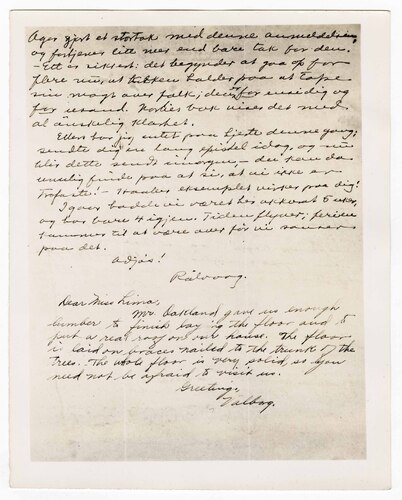 gjort et stortak med denne anmeldelsen,
og fortjener litt mer end bare tak for den.
- Ett er sikkert: det begynder at gaa op for
flere nu, at kirken holder paa at tape
sin magt over folk; den er for ensidig og
for usand. bok viser det med
al ønskelig klarhet.
Ellers har jeg intet paa hjerte denne gang;
sendte dig en lang epistel idag, og nu
blir dette sendt imorgen, - du kan da
umulig finde paa at si, at vi ikke er
- eksemplet virker paa dig!
Igaar hadde vi været her akkurat 6 uker,
og har bare 4 igjen. Tiden flyver; ferien
kommer til at være over før vi sanser
paa det.
Adjøs!
Rölvaag.
Dear Miss Lima,
Mr. Oakland gave us enough
lumber to finish laying the floor and to
put a real roof on our house. The floor
is laid on braces nailed to the trunk of the
trees. The whole floor is very solid, so you
need not be afraid to visit us.
Greetings,
Valborg.